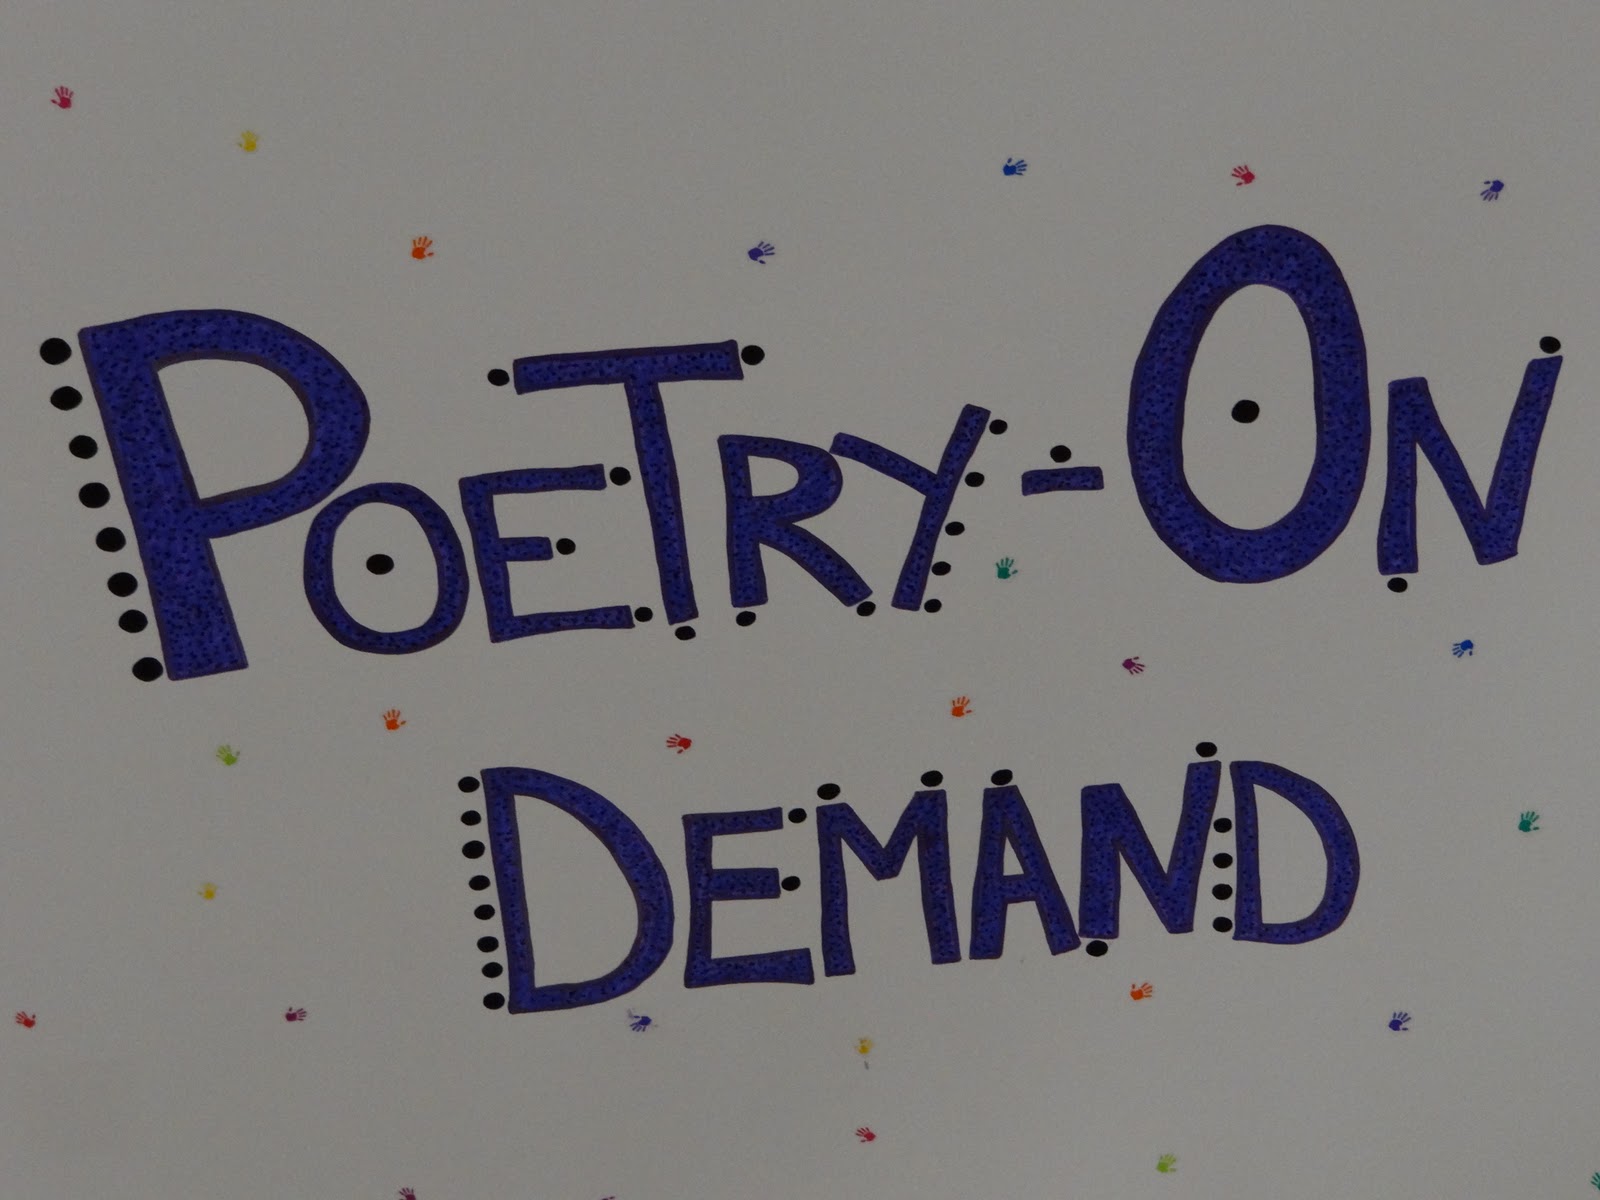 POETRY-ON
DEMAND